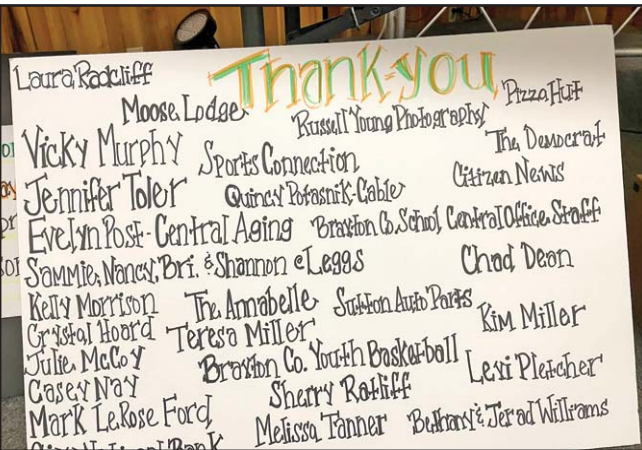 Thank you
Laura Radcliff
Moose Lodge
Russell Young Photography
Pizza Hut
Vicky Murphy
Sports Connection
The Democrat
Jennifer Toler
Quincy Potasnik-Cable
Citizen News
Evelyn Post - Central Aging
Braxton Co. School Central Office Staff
Sammie, Nancy, Bri. & Shannon @ Leggs
Chad Dean
Kelly Morrison
The Annabelle
Sutton Auto Parts
Crystal Hoard
Teresa Miller
Kim Miller
Julie McCoy
Braxton Co. Youth Basketball
Levi Pletcher
Casey Nay
Sherry Ratliff
Mark LeRose Ford
Melissa Tanner
Bethany & Jerad Williams
National Bank